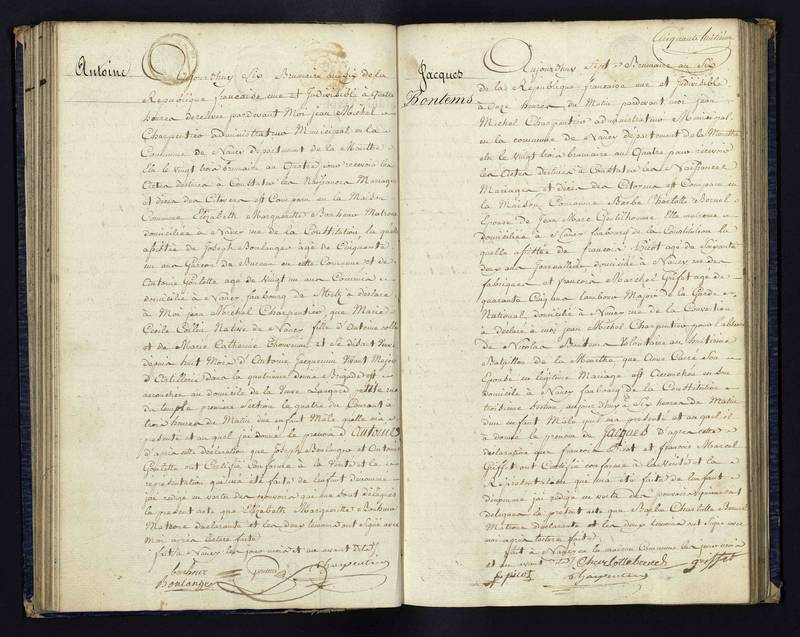 Antoine
Aujourd'huy Six Brumaire an Six de la
Republique française une et Indivisible à Quatre
heures de relevée pardevant Moi jean Michel
Charpentier administrateur Municipal en la
Commune de Nancy Département de la Meurthe
Elu le vingt trois brumaire an Quatre pour recevoir les
Actes destinés à Constater les Naissances Mariages
et décès des Citoyens est Comparu en la Maison
Commune Elizabeth Margueritte Matrone
domiciliée à Nancy rue de la Constitution, la quelle
assistée de Joseph Boulanger agé de Cinquante
un ans Garçon de Bureau en cette Commune et de
Antoine Goulotte agé de vingt un ans Commis
domicilié à Nancy faubourg de Metz a déclaré
à Moi jean Michel Charpentier, que Marie
Cecile Collin Native de Nancy fille d'Antoine Collin
et de Marie Catherine et Se disant
depuis huit Mois d'Antoine Jacquemin Major
d'Artillerie dans la quatrieme demie Brigade est
accouchée au domicile de la Veuve petite rue
premiere Section le quatre du Courant à
trois heures du Matin d'un enfant Mâle quelle m'a
présenté et au quel j'ai donné le prénom d'Antoine
D'après cette déclaration que Joseph Boulanger et Antoine
Goulotte ont Certifié Conforme à la Vérité et la
représentation qui m'a été faite de l'enfant dénommé
j'ai redigé en vertu des pouvoirs qui me sont délégués
le present acte que Elizabeth Margueritte
Matrone declarante et les deux temoins ont Signé avec
moi après lecture faite
fait à Nancy les jour mois et an avant dits
Boulanger Charpentier
Cinquante huitieme
Jacques
Bontems
Aujourd'huy Sept Brumaire an Six
de la République française une et Indivisible
à Onze heures du Matin pardevant moi jean
Michel Charpentier administrateur Municipal
en la commune de Nancy département de la Meurthe
élu le vingt trois brumaire an Quatre pour recevoir
les Actes destinés à Constater les Naissances
Mariages et décès des Citoyens est Comparu en
la Maison Commune Barbe Charlotte
Epouse de Jean Marc Gentilhomme Elle matrone
domiciliée à Nancy faubourg de la Constitution la
quelle assistée de françois Picot agé de Soixante
deux ans Journallier, domicilié à Nancy rue des
fabriques et francois Marchel Giffet agé de
quarante Cinq ans tambour Major de la Garde
National domicilié à Nancy rue de la Convention
à déclaré à moi jean Michel Charpentier pour l'absence
de Nicolas Bontems Volontaire au huitieme
Bataillon de la Meurthe que Anne son
Epouse en légitime Mariage est Accouchée en son
domicile à Nancy faubourg de la Constitution
troisieme Section aujourd'huy à Six heures du Matin
d'un enfant Mâle qu'il m'a présenté et au quel il
a donné le prénom de Jacques d'après cette
déclaration que francois Picot et françois Marcel
Giffet ont Certifié conforme à la Vérité et la
Représentation qui m'a été faite de l'enfant
denommé j'ai redigé en vertu des pouvoirs qui me sont
delegués le présent acte que Barbe Charlotte
Matrone déclarante et les deux temoins ont Signé avec
moi après lecture faite
fait à Nancy en la maison Commune les jour mois
et an avant dits Charlotte
picot Charpentier